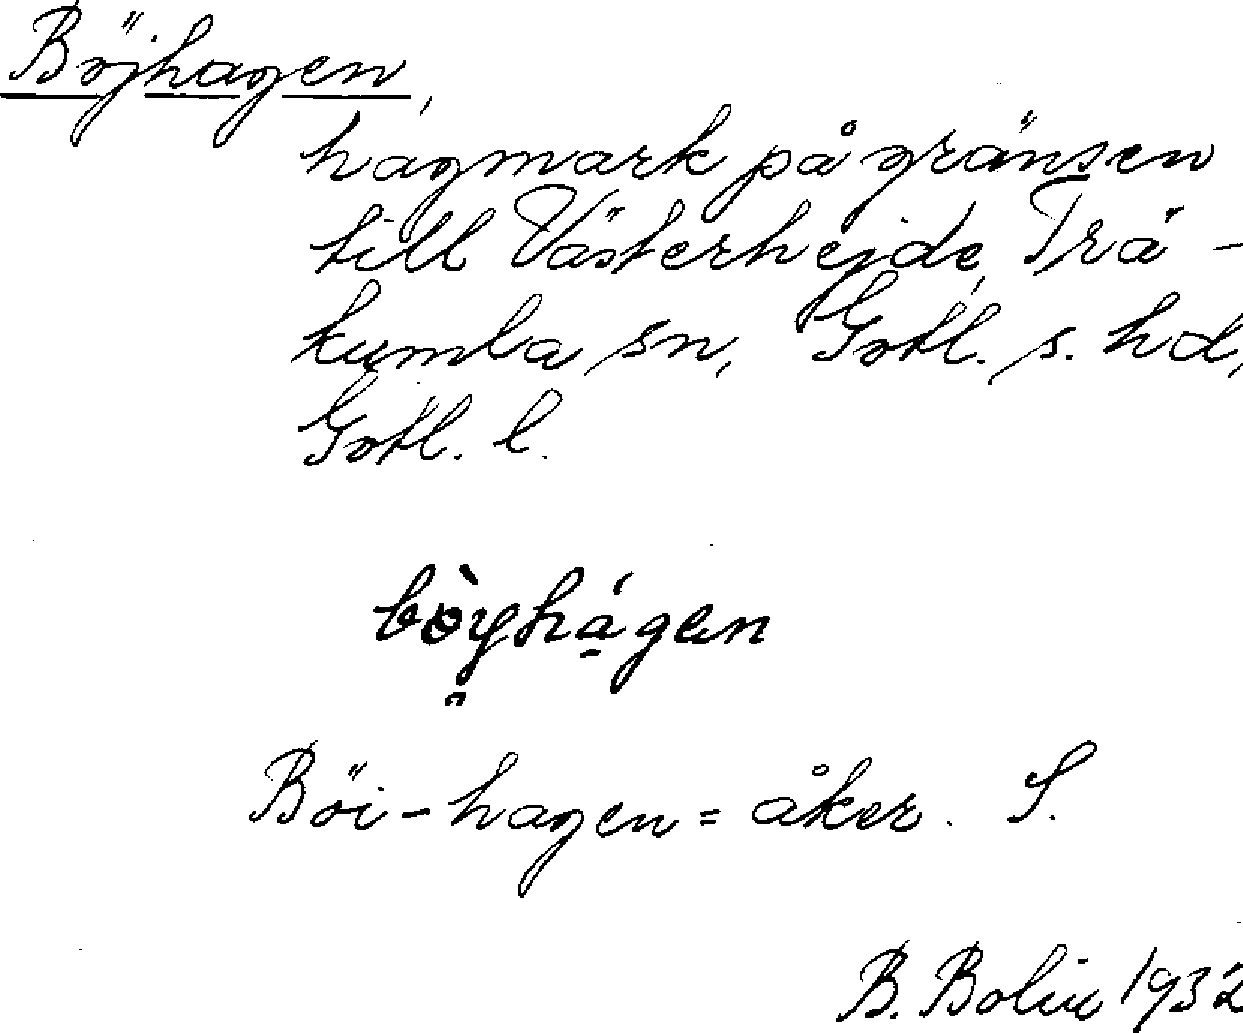 Böjhagen,
hagmark på gränsen
till Västerhejde, Trä-
kumla sn, Gotl. s. hd,
Gotl. l.
bòyhágen
Böi-hagen = åker. S.
B. Bolin 1932